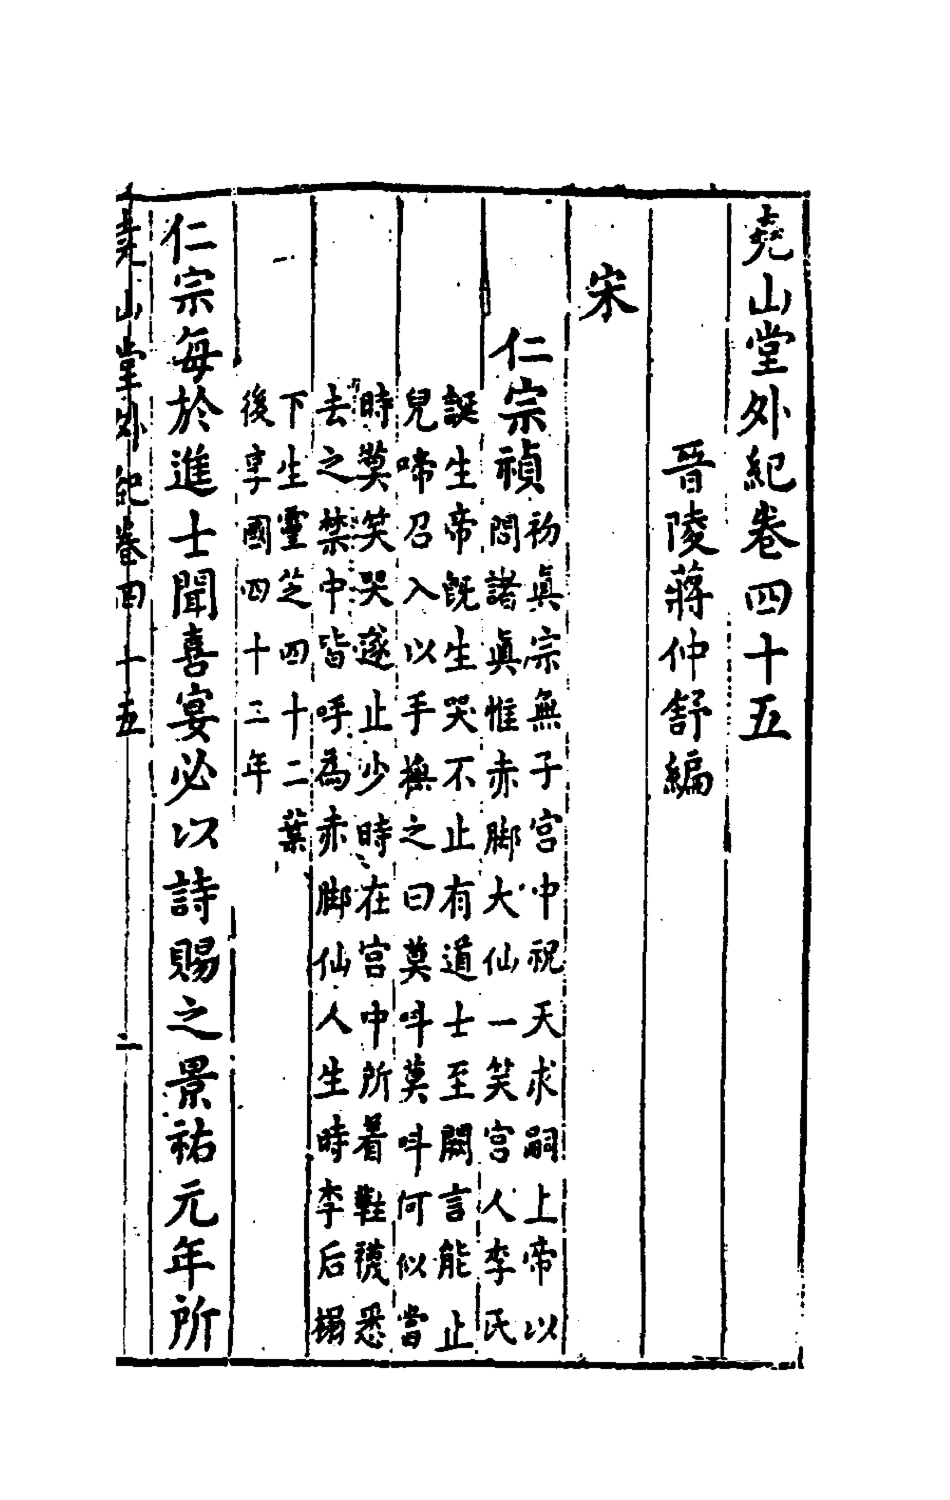 堯山堂外紀卷四十五
晉陵蔣仲舒編
宋
仁宗禎
初眞宗無子宮中祝天求嗣上帝以
問諸眞惟赤脚大仙一笑宮人李氏
誕生帝旣生哭不止有道士至闕言能止
兒啼召入以手撫之曰莫呌莫呌何似當
時莫笑哭遂止少時在宮中所着鞋襪悉
去之禁中皆呼為赤脚仙人生時李后榻
下生靈芝四十二葉
後享國四十三年
仁宗每於進士聞喜宴必以詩賜之景祐元年所
堯山堂外紀卷四十五
一